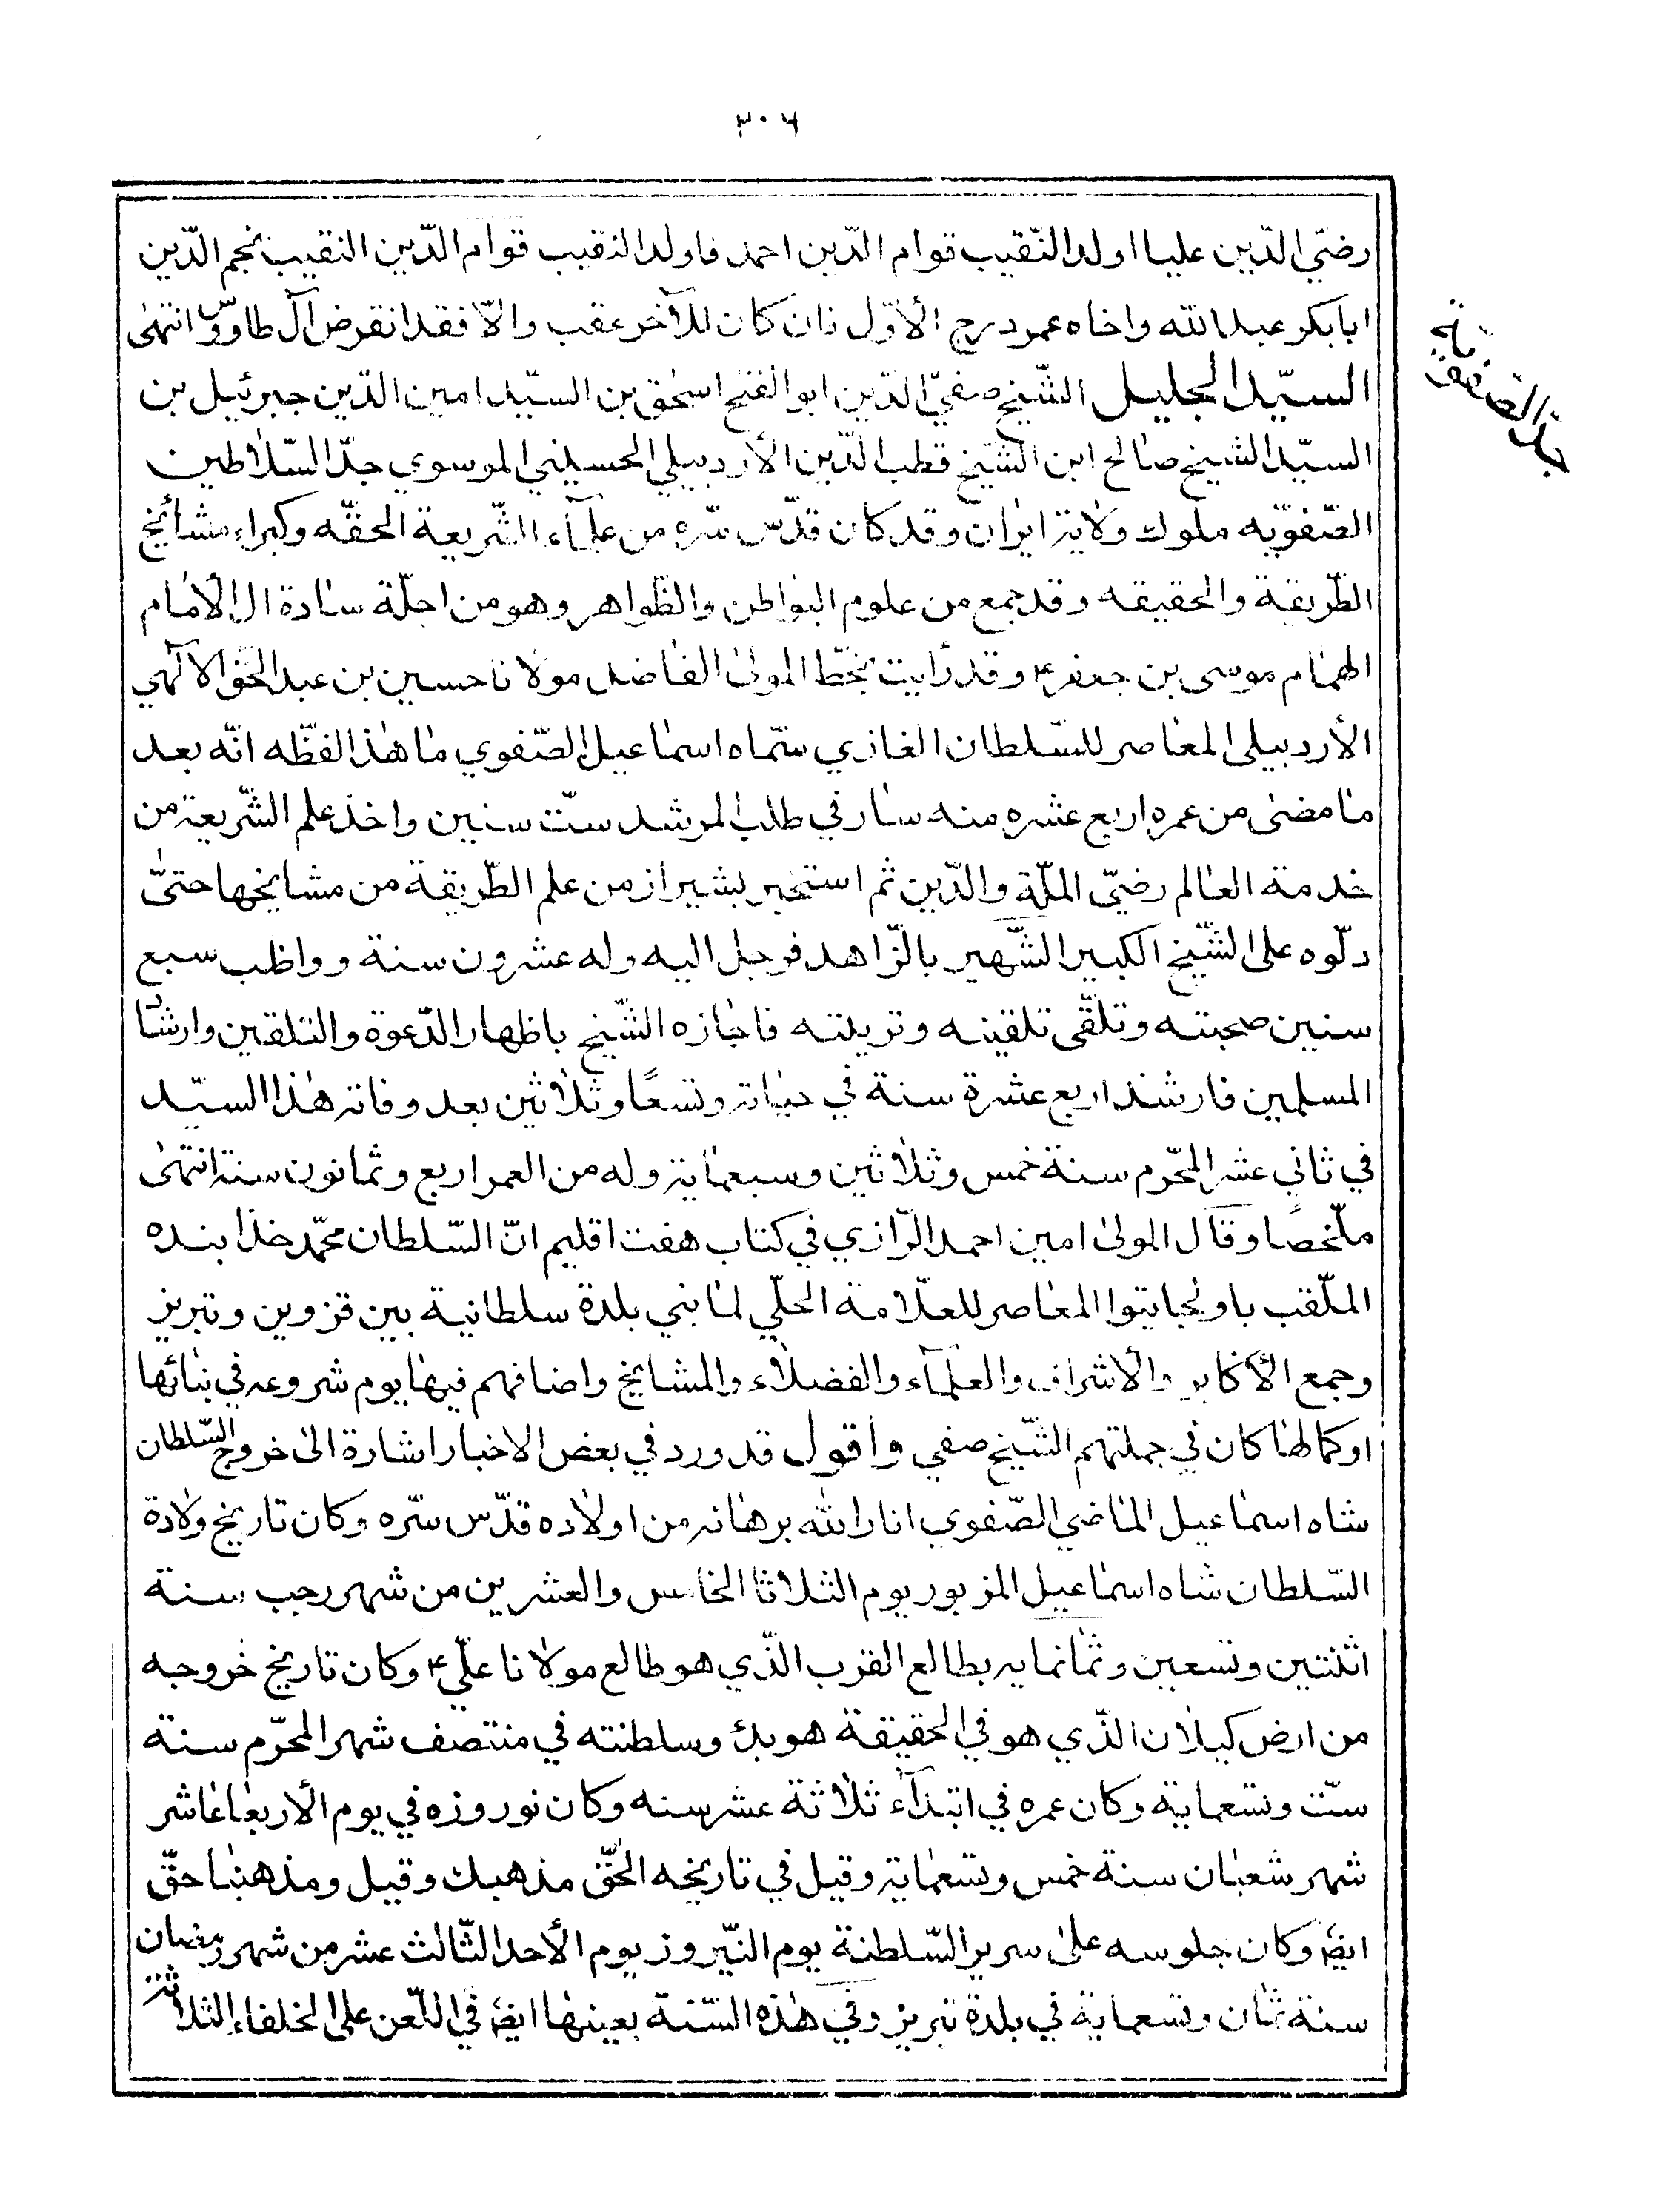 ٣٠٦
رضيّ الدّين عليا اولد النّقيب قوام الدّين احمد فاولد النقيب قوام الدّين النقيب نجم الدّين
ابابكر عبد الله واخاه عمر درج الأوّل فان كان للآخر عقب والّا فقد انقرض آل طاوسّ انتهىٰ
السيّد الجليل الشّيخ صفيّ الدّين ابو الفتح اسحٰق بن السيّد امين الدّين جبرئيل بن
السيّد الشيخ صالح ابن الشّيخ قطب الدّين الأردبيلي الحسيني الموسوي جدّ السّلاطين
الصّفويّه ملوك ولاية ايران وقد كان قدّس سّره من علمآء الشّريعة الحقّه وكبراء مشائخ
الطّريقة والحقيقه وقد جمع من علوم البواطن والظّواهر وهو من اجلّة سادة ال الأمام
الهمام موسى بن جعفر ع وقد رأيت بخّط المولىٰ الفاضل مولانا حسين بن عبد الحق الالٓهي
الأردبيلي المعاصر للسّلطان الغازي شاه اسماعيل الصّفوي ما هٰذا لفظّه انّه بعد
ما مضىٰ من عمره اربع عشره سنه سار في طلب المرشد ستّ سنين واخذ علم الشّريعة من
خدمة العالم رضيّ الملّة والدّين ثم استخبر بشيراز من علم الطّريقة من مشايخها حتىّٰ
دلّوه على الشّيخ الكبير الشّهير بالزّاهد فرحل اليه وله عشرون سنة وواظب سبع
سنين صحبته وتلقّى تلقينه وتربيته فاجازه الشّيخ باظهار الدّعوة والتلقين وارشاد
المسلمين فارشد اربع عشرة سنة في حياته وتسعًا وثلاثين بعد وفاته هٰذا السيّد
في ثاني عشر المحّرم سنة خمس وثلاثين وسبعماية وله من العمر اربع وثمانون سنة انتهىٰ
ملّخصًا وقال المولىٰ امين احمد الرّازي في كتاب هفت اقليم انّ السّلطان محمّد خدا بنده
الملّقب باولجايتوا المعاصر للعلّامة الحلّي لما بني بلدة سلطانية بين قزوين وتبريز
وجمع الأكابر والاشراف والعلمآء والفضلاء والمشايخ واضافهم فيها يوم شروعه في بنائها
اوكمالها كان في جملتهم الشّيخ صفي واقول قد ورد في بعض الاخبار اشارة الىٰ خروج السّلطان
شاه اسماعيل الماضي الصّفوي انار الله برهانه من اولاده قدّس سّره وكان تاريخ ولادة
السّلطان شاه اسماعيل المزبور يوم الثلاثا الخامس والعشرين من شهر رجب سنة
اثنتين وتسعين وثمانمايه بطالع القرب الذّي هو طالع مولانا عليّ ع وكان تاريخ خروجه
من ارض كيلان الذّي هو في الحقيقة هو بدؤ سلطنته في منتصف شهر المحّرم سنة
ستّ وتسعماية وكان عمره في ابتدآء ثلاثة عشر سنه وكان نوروزه في يوم الأربعا عاشر
شهر شعبان سنة خمس وتسعماية وقيل في تاريخه الحّق مذهبك وقيل ومذهبنا حقّ
ايضً وكان جلوسه علىٰ سرير السّلطنة يوم النّيروز يوم الأحد الثّالث عشر من شهر رمضان
سنة ثمان وتسعماية في بلدة تبريز وفي هٰذه السّنة بعينها ايضً في اللّعن على الخلفاء الثلاثة
جدّ الصّفويّة